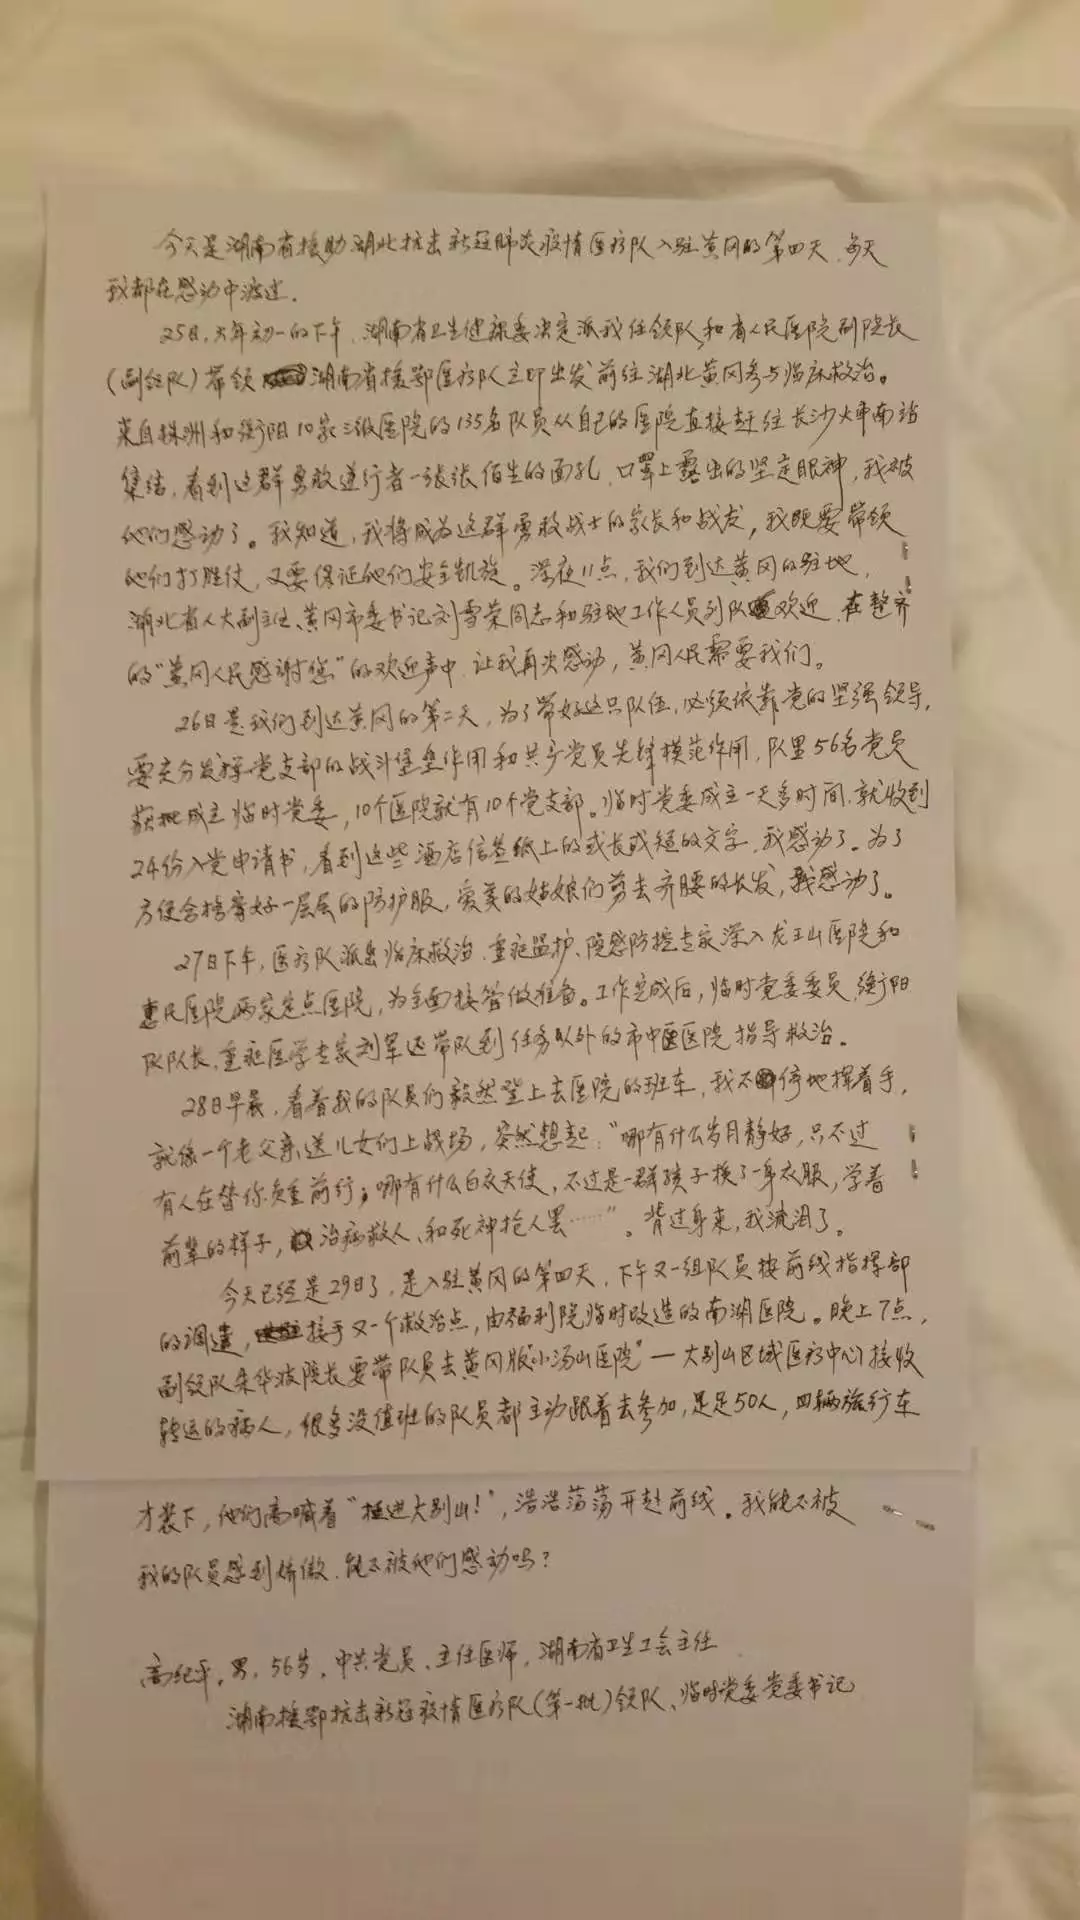 今天是湖南省援助湖北抗击新冠肺炎疫情医疗队入驻黄冈的第四天,每天
我都在感动中渡过.
25日,大年初一的下午,湖南省卫生健康委决定派我任领队,和省人民医院副院长
(副领队)带领湖南省援鄂医疗队立即出发前往湖北黄冈参与临床救治。
来自株洲和衡阳10家三级医院的135名队员从自己的医院直接赶往长沙火车南站
集结,看到这群勇敢逆行者一张张陌生的面孔,口罩上露出的坚定眼神,我被
他们感动了。我知道,我将成为这群勇敢战士的家长和战友,我既要带领
他们打胜仗,又要保证他们安全凯旋。深夜11点,我们到达黄冈的驻地,
湖北省人大副主任、黄冈市委书记刘雪荣同志和驻地工作人员列队欢迎,在整齐
的“黄冈人民感谢您”的欢迎声中,让我再次感动,黄冈人民需要我们。
26日是我们到达黄冈的第二天,为了带好这只队伍,必须依靠党的坚强领导,
要充分发挥党支部的战斗堡垒作用和共产党员先锋模范作用,队里56名党员
获批成立临时党委,10个医院就有10个党支部。临时党委成立一天多时间,就收到
24份入党申请书,看到这些酒店信签纸上的或长或短的文字,我感动了。为了
方便穿好一层层的防护服,爱美的姑娘们剪去齐腰的长发,我感动了。
27日下午,医疗队派出临床救治、重症监护、院感防控专家深入龙王山医院和
惠民医院两家定点医院,为全面接管做准备。工作完成后,临时党委委员、衡阳
队队长、重症医学专家刘军还带队到任务以外的市中医医院指导救治。
28日早晨,看着我的队员们毅然登上去医院的班车,我不停地挥着手,
就像一个老父亲送儿女们上战场,突然想起:“哪有什么岁月静好,只不过
有人在替你负重前行;哪有什么白衣天使,不过是一群孩子换了一身衣服,学着
前辈的样子,治病救人、和死神抢人罢……”。背过身来,我流泪了。
今天已经是29日了,是入驻黄冈的第四天,下午又一组队员按前线指挥部
的调遣,接手又一个救治点,由福利院临时改造的南湖医院。晚上7点,
副领队朱华波院长要带队员去黄冈版“小汤山医院”—大别山区域医疗中心接收
转运的病人,很多没值班的队员都主动跟着去参加,足足50人,四辆旅行车
才装下,他们高喊着“挺进大别山!”,浩浩荡荡开赴前线。我能不被
我的队员感到骄傲,能不被他们感动吗?
高纪平,男,56岁,中共党员、主任医师,湖南省卫生工会主任
湖南援鄂抗击新冠疫情医疗队(第一批)领队、临时党委党委书记